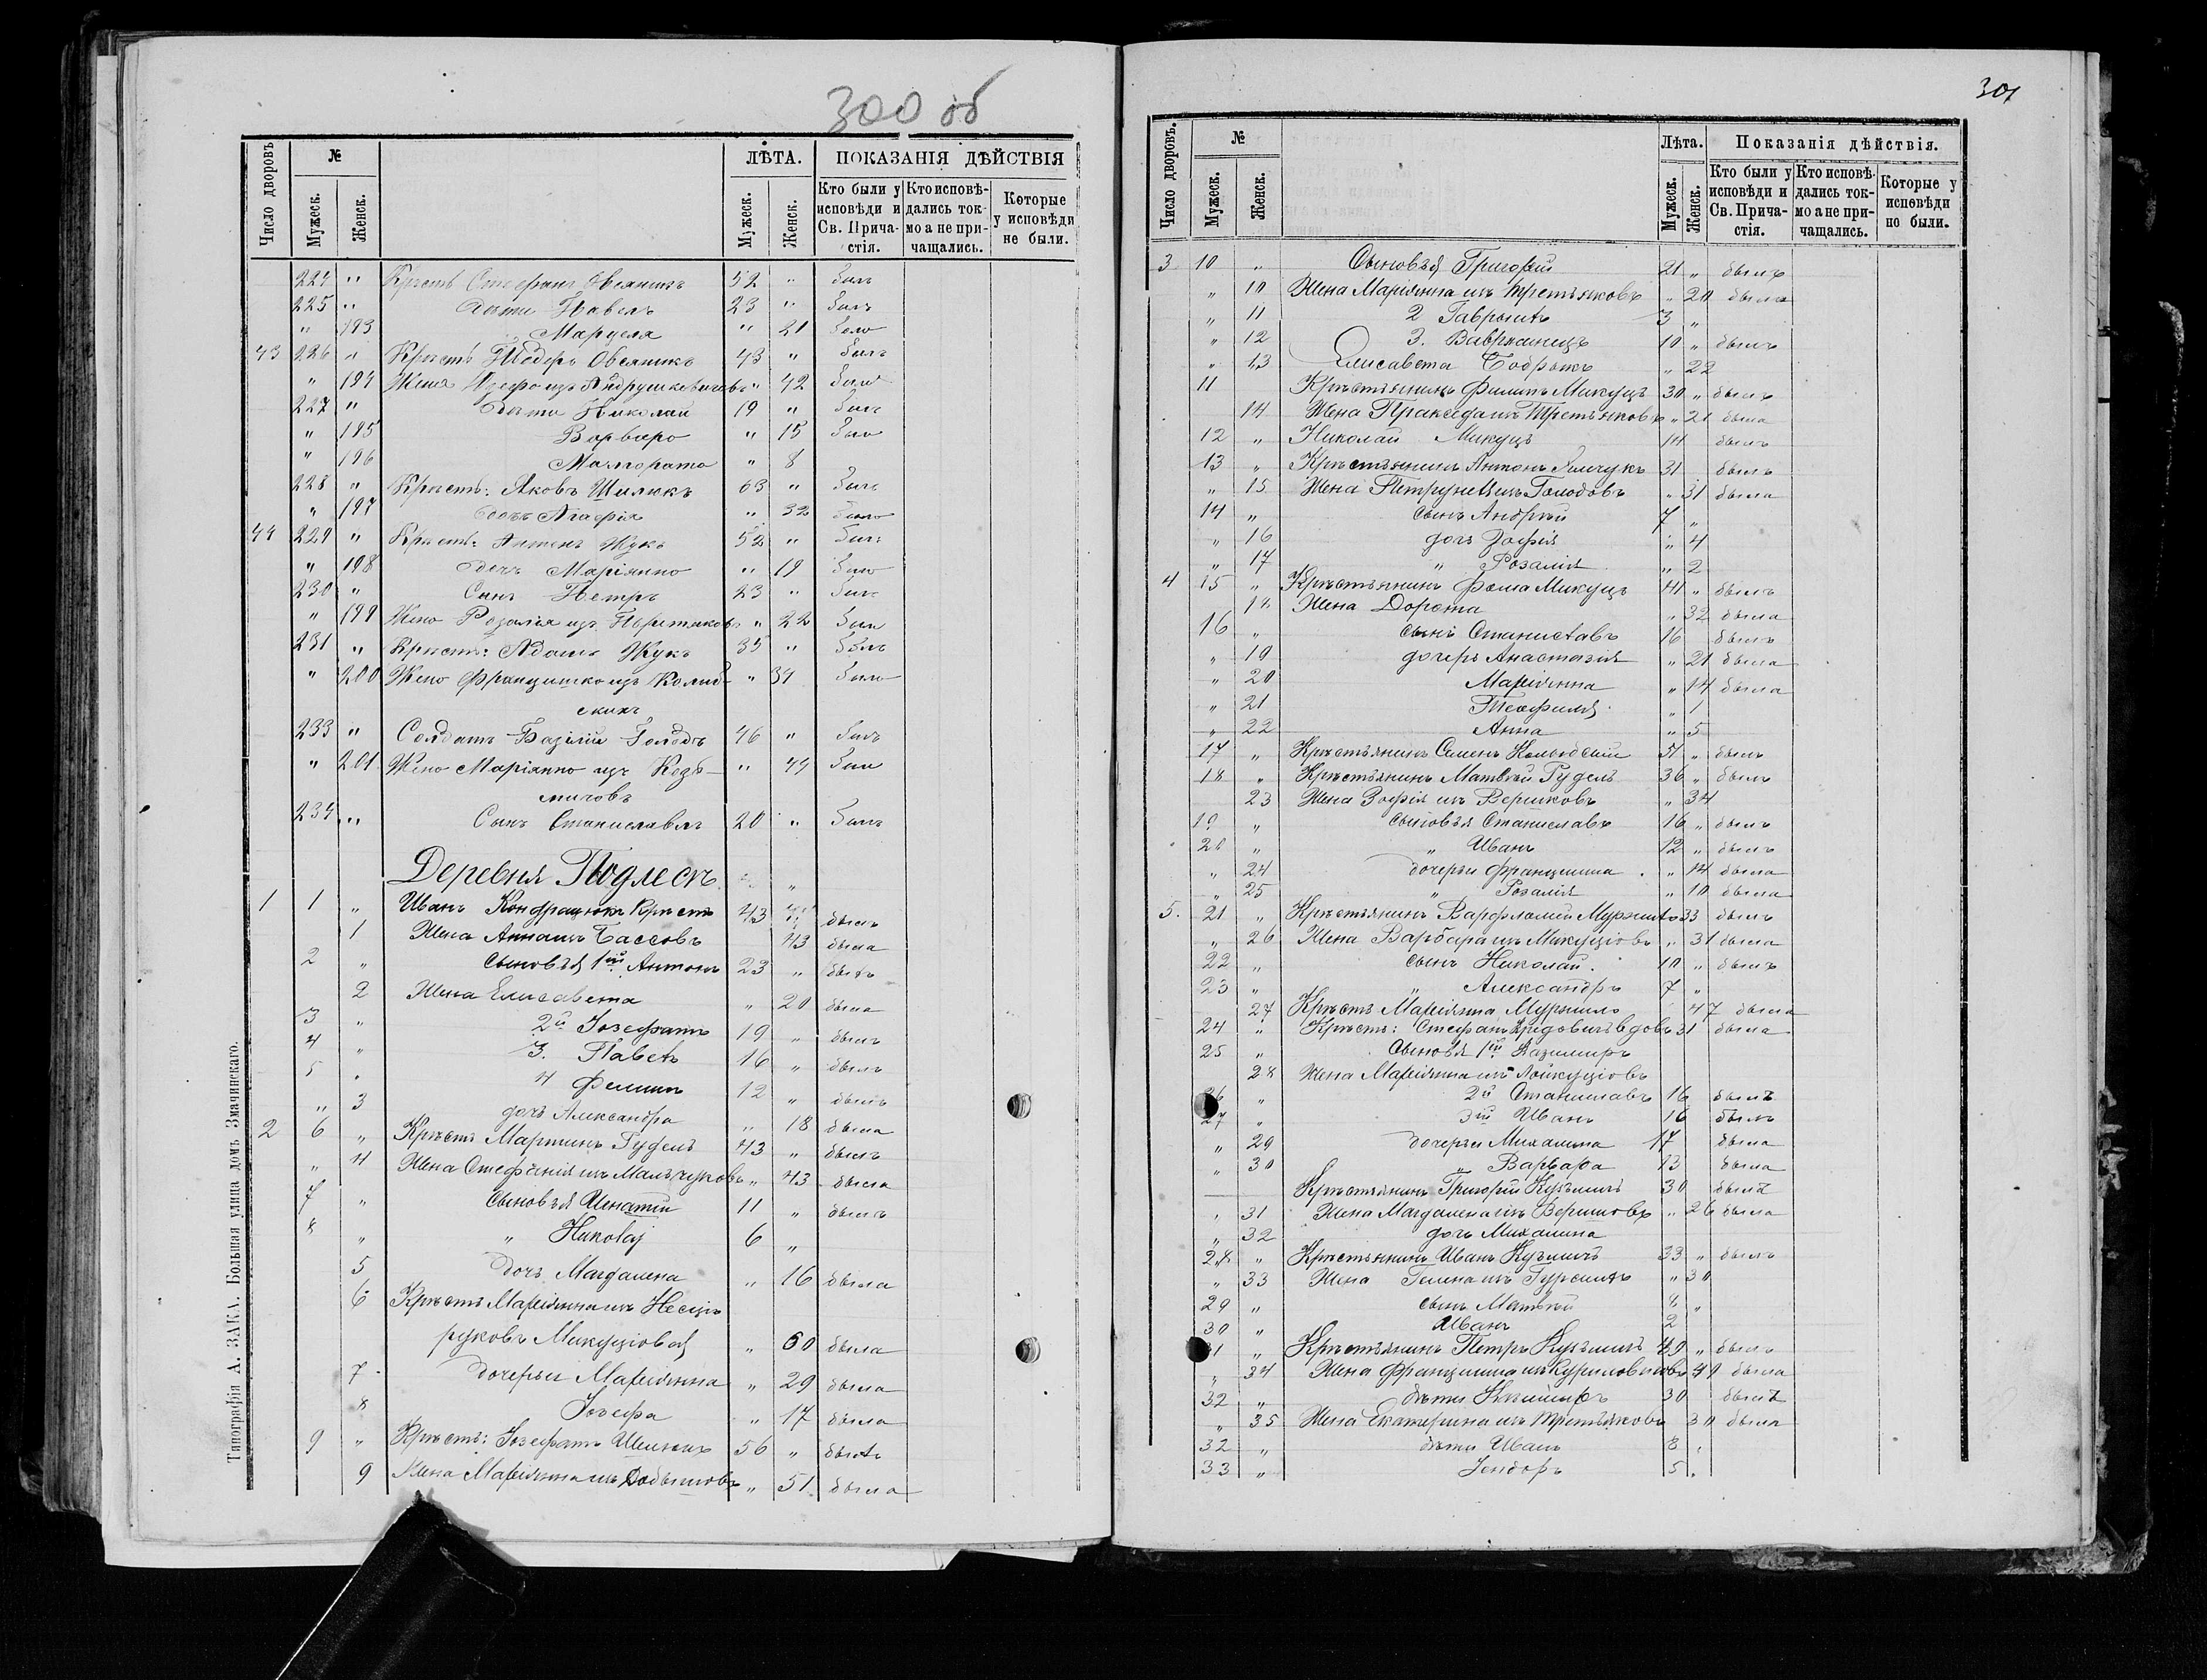 300 об
Число дворовъ
№
ЛѢТА.
ПОКАЗАНІЯ ДѢЙСТВІЯ
Мужеск.
Женск.
Мужеск.
Женск.
Кто были у исповѣди и Св. Прича-стія.
Кто исповѣ-дались ток-мо а не при-чащались.
Которые у исповѣди не были.
224 " Крестъ Стефанъ Овсяникъ 52 " былъ
225 " Дѣти Павелъ 23 " былъ
" 193 Марцеля " 21 была
43 226 " Крестъ Ѳедоръ Овсяникъ 43 " былъ
" 194 Жена изъ Андрушкевичовъ " 42 была
227 " Дѣти Николай 19 " былъ
" 195 Варвара " 15 была
" 196 " 8
228 " Крестъ: Яковъ Шилюкъ 63 " былъ
" 197 дочь Агафія " 32 была
44 229 " Крестъ: Антонъ Жукъ 52 " былъ
" 198 дочь Маріянна " 19 была
230 " Сынъ Петръ 23 " былъ
" 199 Жена Розалія изъ " 22 была
231 " Крестъ: Адамъ Жукъ 35 " былъ
" 200 Жена Францишка изъ " 34 была
233 " Солдатъ Базилій Голодъ 46 " былъ
" 201 Жена Маріянна изъ Козь- " 44 была
мичовъ
234 " Сынъ Станиславъ 20 " былъ
Деревня Подлесъ " "
1 1 " Иванъ Кондрацюкъ Крестъ 43 былъ
1 Жена Анна изъ Бассовъ 43 была
2 " сыновья 1ый Антонъ 23 " былъ
2 Жена Елисавета " 20 была
3 " 2й Іозефатъ 19 " былъ
4 " 3. Павелъ 16 " былъ
5 " 4 Филипъ 12 " былъ
" 3 дочь Александра " 18 была
2 6 " Крестъ Мартинъ Гудель 43 " былъ
" 4 Жена Стефанія изъ Мальчуковъ " 43 была
7 " сыновья Игнатій 11 " былъ
8 " " Николај 6 "
5 дочь Магдалена " 16 была
6 Крестъ Маріянна изъ
Микуціова " 60 была
7 дочерьи Маріянна " 29 была
8 Іозефа " 17 была
9 " Крестъ: Іозефатъ Шилюкъ 56 " былъ
9 Жена Маріянна изъ " 51 была
Типографія А. ЗАКА. Большая улица домъ Змачинскаго.
301
Число дворовъ.
№
Лѣта.
Показанія дѣйствія.
Мужеск.
Женск.
Мужеск.
Женск.
Кто были у исповѣди и Св. Прича-стія.
Кто исповѣ-дались ток-мо а не при-чащались.
Которые у исповѣди не были.
3 10 " Сыновья Григорій 21 " былъ
" 10 Жена Маріянна изъ Третьяковъ " 20 была
" 11 2 3 "
" 12 3. 10 " былъ
" 13 Елисавета " 22
11 Крестьянинъ Филипъ Микуцъ 30 " былъ
14 Жена Пракседа изъ Третьяковъ " 21 была
12 " Николай Микуцъ 14 былъ
13 " Крестьянинъ Антонъ 31 былъ
" 15 Жена изъ Голодовъ " 31 была
14 " сынъ Андрей 7 "
" 16 дочь Зофія " 4
" 17 " Розалія " 2
4 15 " Крестьянинъ Фома Микуцъ 41 " былъ
18 Жена Дорота " 32 была
16 " сынъ Станиславъ 16 былъ
" 19 дочерь Анастазія " 21 была
" 20 Маріянна " 14 была
" 21 Теофиля " 1
" 22 Анна " 5
17 " Крестьянинъ Семенъ 51 " былъ
18 " Крестьянинъ Матвѣй Гудель 36 " былъ
23 Жена Зофія изъ Вершковъ " 34
19 " сыновья Станиславъ 16 " былъ
20 " " Иванъ 12 " былъ
" 24 дочерьи Францишка " 14 была
" 25 " Розалія " 10 была
5. 21 " Крестьянинъ Варфломей 33 былъ
" 26 Жена Варбара изъ Микуціовъ " 31 была
22 " сынъ Николай 10 " былъ
23 " " Александръ 7 "
27 Крестъ Маріянна 47 была
24 " Крестъ: Стефанъ вдовъ 31 была
25 " Сыновья 1ый Казимиръ
28 Жена Маріянна изъ
26 " 2й Станиславъ 16 былъ
27 " 3ій Иванъ 16 былъ
" 29 дочерьи Михалина 17 была
" 30 " Варвара 13 была
Крестьянинъ Григорій Кузьмичъ 30 былъ
" 31 Жена Магдалена изъ Вершковъ " 26 была
" 32 дочь Михалина
28 " Крестьянинъ Иванъ Кузьмичъ 33 " былъ
" 33 Жена изъ " 30
29 " сынъ Матвѣй "
30 " Иванъ 2
31 " Крестьянинъ Петръ Кузьмичъ 49 " былъ
" 34 Жена Францишка изъ 49 была
32 " дѣти 30 былъ
" 35 Жена Екатерина изъ Третьяковъ 30 была
32 " дѣти Иванъ 8 "
33 " 5 "